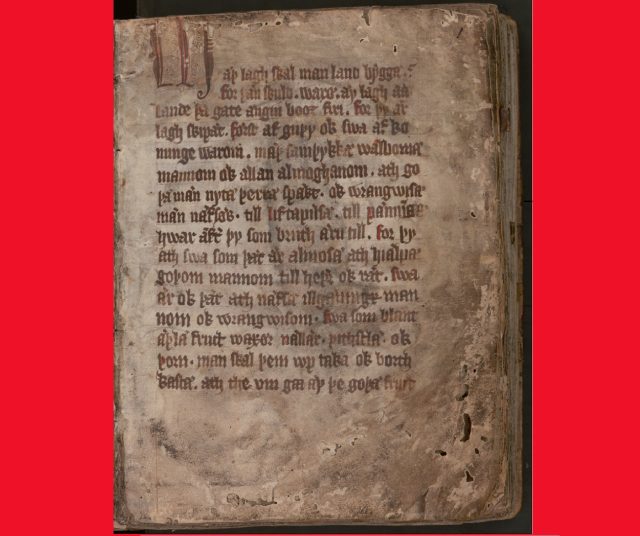 M æþ lagh skal man land byggia
for þan skuld. waro. æy lagh aa
lande þa gate ængin boot firi. for þy ær
lagh skipat. forst af guþy ok swa af ko
nunge warom. mæþ samþykkæ
mannom ok allan almoghanom. ath go
þa mæn nyta þerra spækt. ok wrangwisa
mæn næfses. till lif tapilsæ. till
hwar æft þy som bruth æru till. for þy
ath swa som þæt ær almosa ath hiælpa
goþom mannom till ok ræt. swa
ær ok þæt ath næfsa illgærningx man
nom ok wrangwisom. swa som blant
æþla fruct waxer næslar. þisthla. ok
þorn. man skal þem wp taka ok borth
kasta. ath the um gæ æy þe goþa fruct